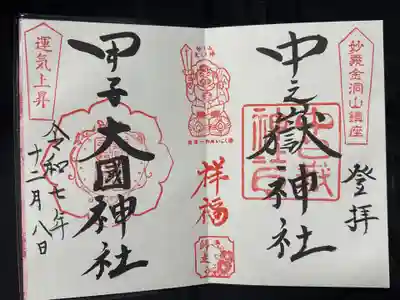 妙義金洞山鎮座
中之嶽神社
登拝
祥福
運気上昇
甲子大國神社
令和七年
十二月八日